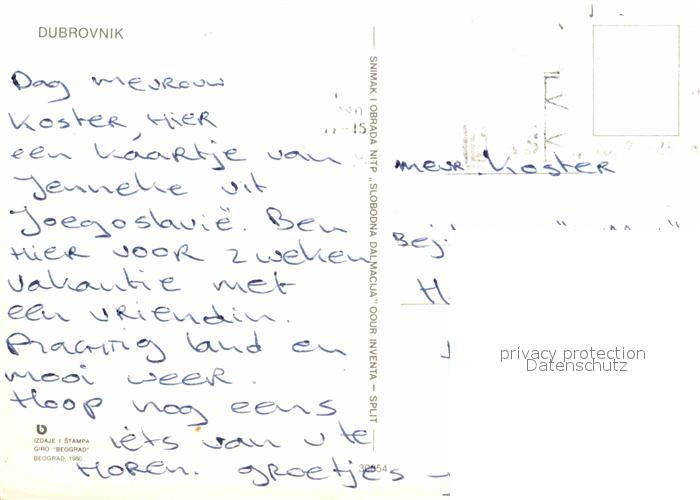 DUBROVNIK
Dag mevrouw
Koster Hier
een kaartje van
Jenneke uit
Joegoslavië. Ben
Hier voor 2 weken
vakantie met
een vriendin.
Prachtig land en
mooi weer.
Hoop nog eens
iets van u te
Horen. groetjes
IZDAJE I ŠTAMPA
GIRO "BEOGRAD"
BEOGRAD, 1980
SNIMAK I OBRADA NITP „SLOBODNA DALMACIJA" OOUR INVENTA — SPLIT
mevr. Koster
privacy protection
Datenschutz